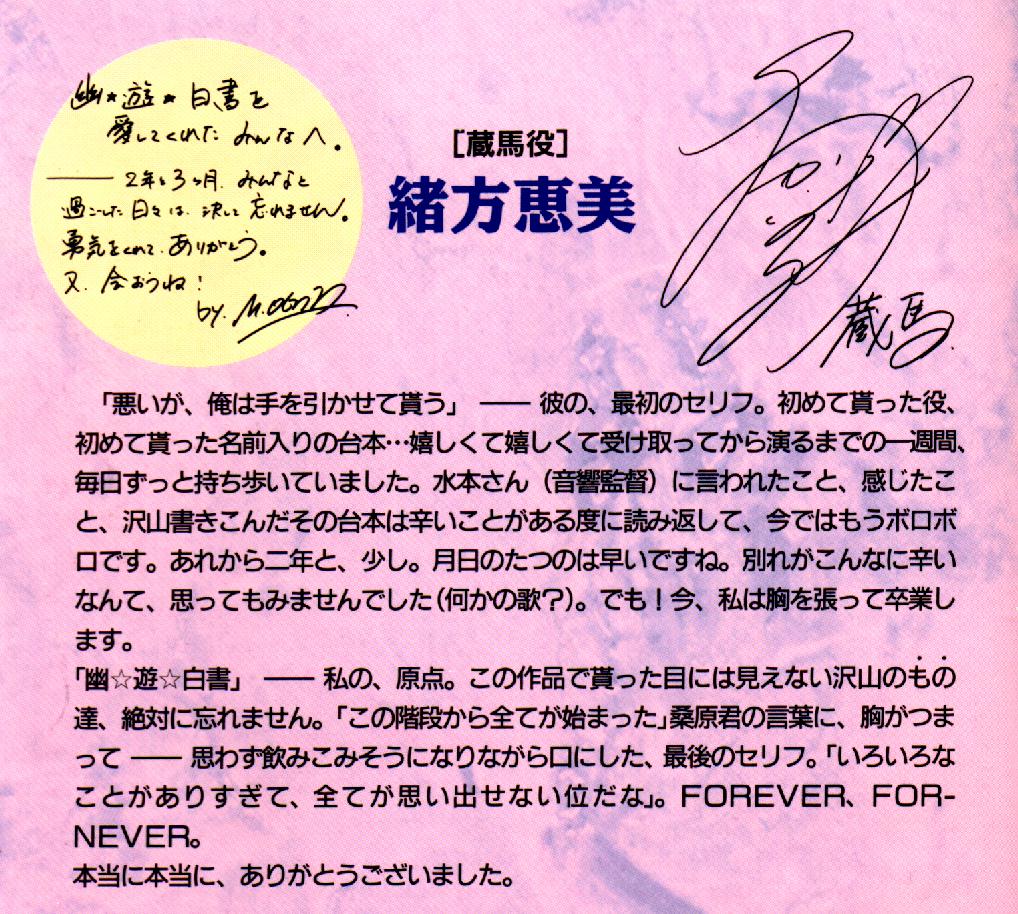 幽★遊★白書を
愛してくれた みんなへ。
── 2年と3ヶ月、みんなと
過ごした日々は、決して忘れません。
勇気をくれて、ありがとう。
又、会おうね!
by. M.
［蔵馬役］
緒方恵美
蔵馬
「悪いが、俺は手を引かせて貰う」 ── 彼の、最初のセリフ。初めて貰った役、
初めて貰った名前入りの台本…嬉しくて嬉しくて受け取ってから演るまでの一週間、
毎日ずっと持ち歩いていました。水本さん（音響監督）に言われたこと、感じたこ
と、沢山書きこんだその台本は辛いことがある度に読み返して、今ではもうボロボ
ロです。あれから二年と、少し。月日のたつのは早いですね。別れがこんなに辛い
なんて、思ってもみませんでした（何かの歌？）。でも！今、私は胸を張って卒業し
ます。
「幽☆遊☆白書」 ── 私の、原点。この作品で貰った目には見えない沢山のもの
達、絶対に忘れません。「この階段から全てが始まった」桑原君の言葉に、胸がつま
って ── 思わず飲みこみそうになりながら口にした、最後のセリフ。「いろいろな
ことがありすぎて、全てが思い出せない位だな」。FOREVER、FOR-
NEVER。
本当に本当に、ありがとうございました。